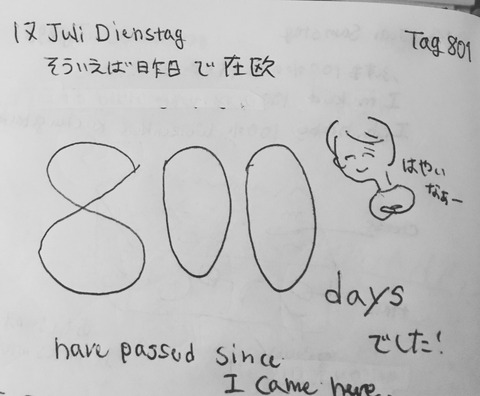 17 Juli Dienstag
Tag 801
そういえば昨日で在欧
800
はやい
なぁー
days
でした!
have passed since
I came here